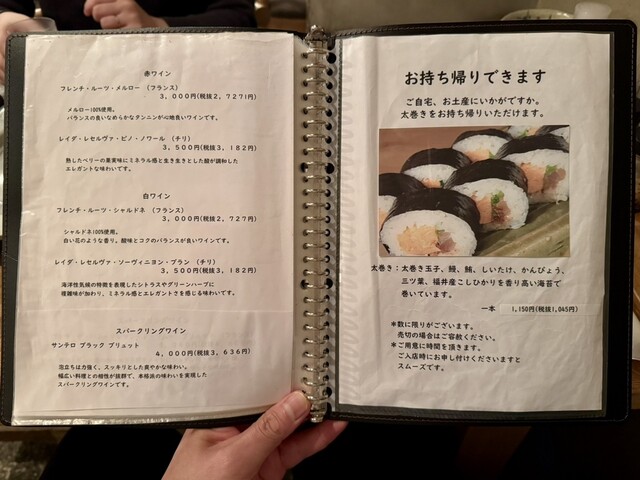 赤ワイン
フレンチ・ルーツ・メルロー (フランス)
3,000円(税抜2,7271円)
メルロー100%使用。
バランスの良いなめらかなタンニンが心地良いワインです。
レイダ・レセルヴァ・ピノ・ノワール (チリ)
3,500円(税抜3,182円)
熟したベリーの果実味にミネラル感と生き生きとした酸が調和した
エレガントな味わいです。
白ワイン
フレンチ・ルーツ・シャルドネ (フランス)
3,000円(税抜2,727円)
シャルドネ100%使用。
白い花のような香り。酸味とコクのバランスが良いワインです。
レイダ・レセルヴァ・ソーヴィニヨン・ブラン (チリ)
3,500円(税抜3,182円)
海洋性気候の特徴を表現したシトラスやグリーンハーブに
複雑味が加わり、ミネラル感とエレガントさを感じる味わいです。
スパークリングワイン
サンテロ ブラック ブリュット
4,000円(税抜3,636円)
泡立ちは力強く、スッキリとした爽やかな味わい。
幅広い料理との相性が抜群で、本格派の味わいを実現した
スパークリングワインです。
お持ち帰りできます
ご自宅、お土産にいかがですか。
太巻きをお持ち帰りいただけます。
太巻き：太巻き玉子、鰻、鮪、しいたけ、かんぴょう、
三ツ葉、福井産こしひかりを香り高い海苔で
巻いています。
一本 1,150円(税抜1,045円)
*数に限りがございます。
売切の場合はご容赦ください。
*ご用意に時間を頂きます。
ご入店時にお申し付けくださいますと
スムーズです。